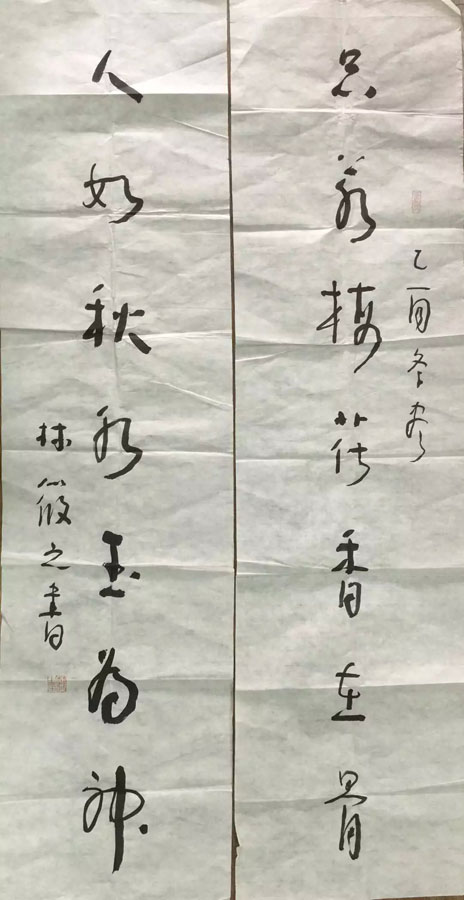 乙酉冬
品若梅花香在骨
人如秋水玉為神
林筱之書